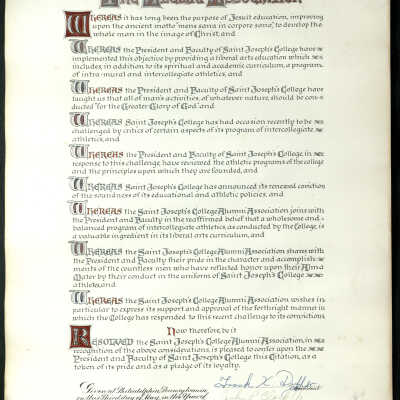 The Alumni Association
WHEREAS it has long been the purpose of Jesuit education, improving
upon the ancient motto "mens sana in corpore sano," to develop the
whole man in the image of Christ; and
WHEREAS the President and Faculty of Saint Joseph's College have
implemented this objective by providing a liberal arts education which
includes, in addition to its spiritual and academic curriculum, a program
of intra-mural and intercollegiate athletics, and
WHEREAS the President and Faculty of Saint Joseph's College have
taught us that all of man's activities, of whatever nature, should be con-
ducted "for the Greater Glory of God" and
WHEREAS Saint Joseph's College has had occasion recently to be
challenged by critics of certain aspects of its program of intercollegiate
athletics, and
WHEREAS the President and Faculty of Saint Joseph's College, in
response to this challenge have reviewed the athletic programs of the college
and the principles upon which they are founded, and
WHEREAS Saint Joseph's College has announced its renewed conviction
of the soundness of its educational and athletic policies, and
WHEREAS the Saint Joseph's College Alumni Association joins with
the President and Faculty in the reaffirmed belief that a wholesome and
balanced program of intercollegiate athletics, as conducted by the College, is
a valuable ingredient in its liberal arts curriculum, and
WHEREAS the Saint Joseph's College Alumni Association shares with
the President and Faculty their pride in the character and accomplish-
ments of the countless men who have reflected honor upon their Alma
Mater by their conduct in the uniforms of Saint Joseph's College
athletics, and
WHEREAS the Saint Joseph's College Alumni Association wishes in
particular to express its support and approval of the forthright manner in
which the College has responded to this recent challenge to its convictions.
Now therefore, be it
RESOLVED the Saint Joseph's College Alumni Association in
recognition of the above considerations, is pleased to confer upon the
President and Faculty of Saint Joseph's College this Citation, as a
token of its pride and as a pledge of its loyalty.
Given at Philadelphia, Pennsylvania
on this Third day of May, in this Year of
Frank X.